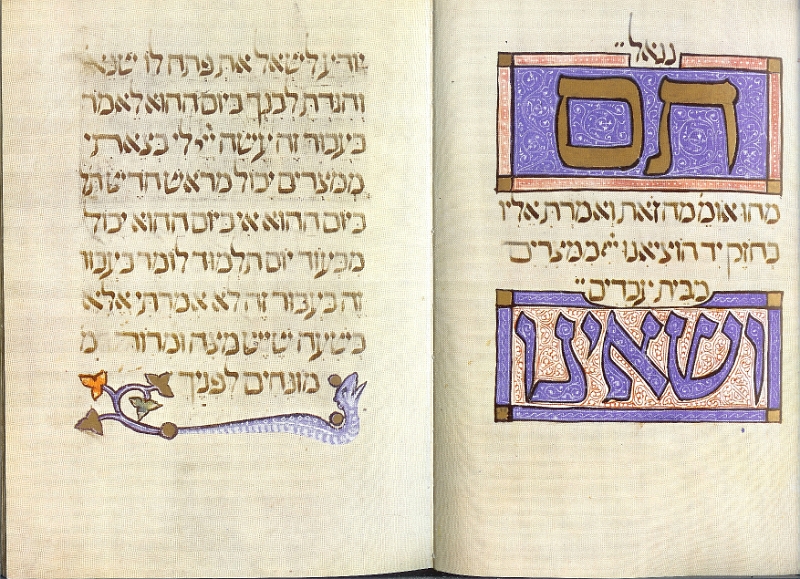 נגאל״
תם
מהו אומ׳ מה זאת ואמרת אליו
בחזק יד הוציאנו יי׳ ממצרים
מבית עבדים״
ושאינו
יודע לישאל את פתח לו שנא׳
והגדת לבנך ביום ההוא לאמר
בעבור זה עשה ייי לי בצאתי
ממצרים יכול מראש חדש ת
ביום ההוא אי ביום ההוא יכול
מבעוד יום תלמוד לומר בעבור
זה בעבור זה לא אמרתי אלא
בשעה שיש מצה ומרור מ
מונחים לפניך